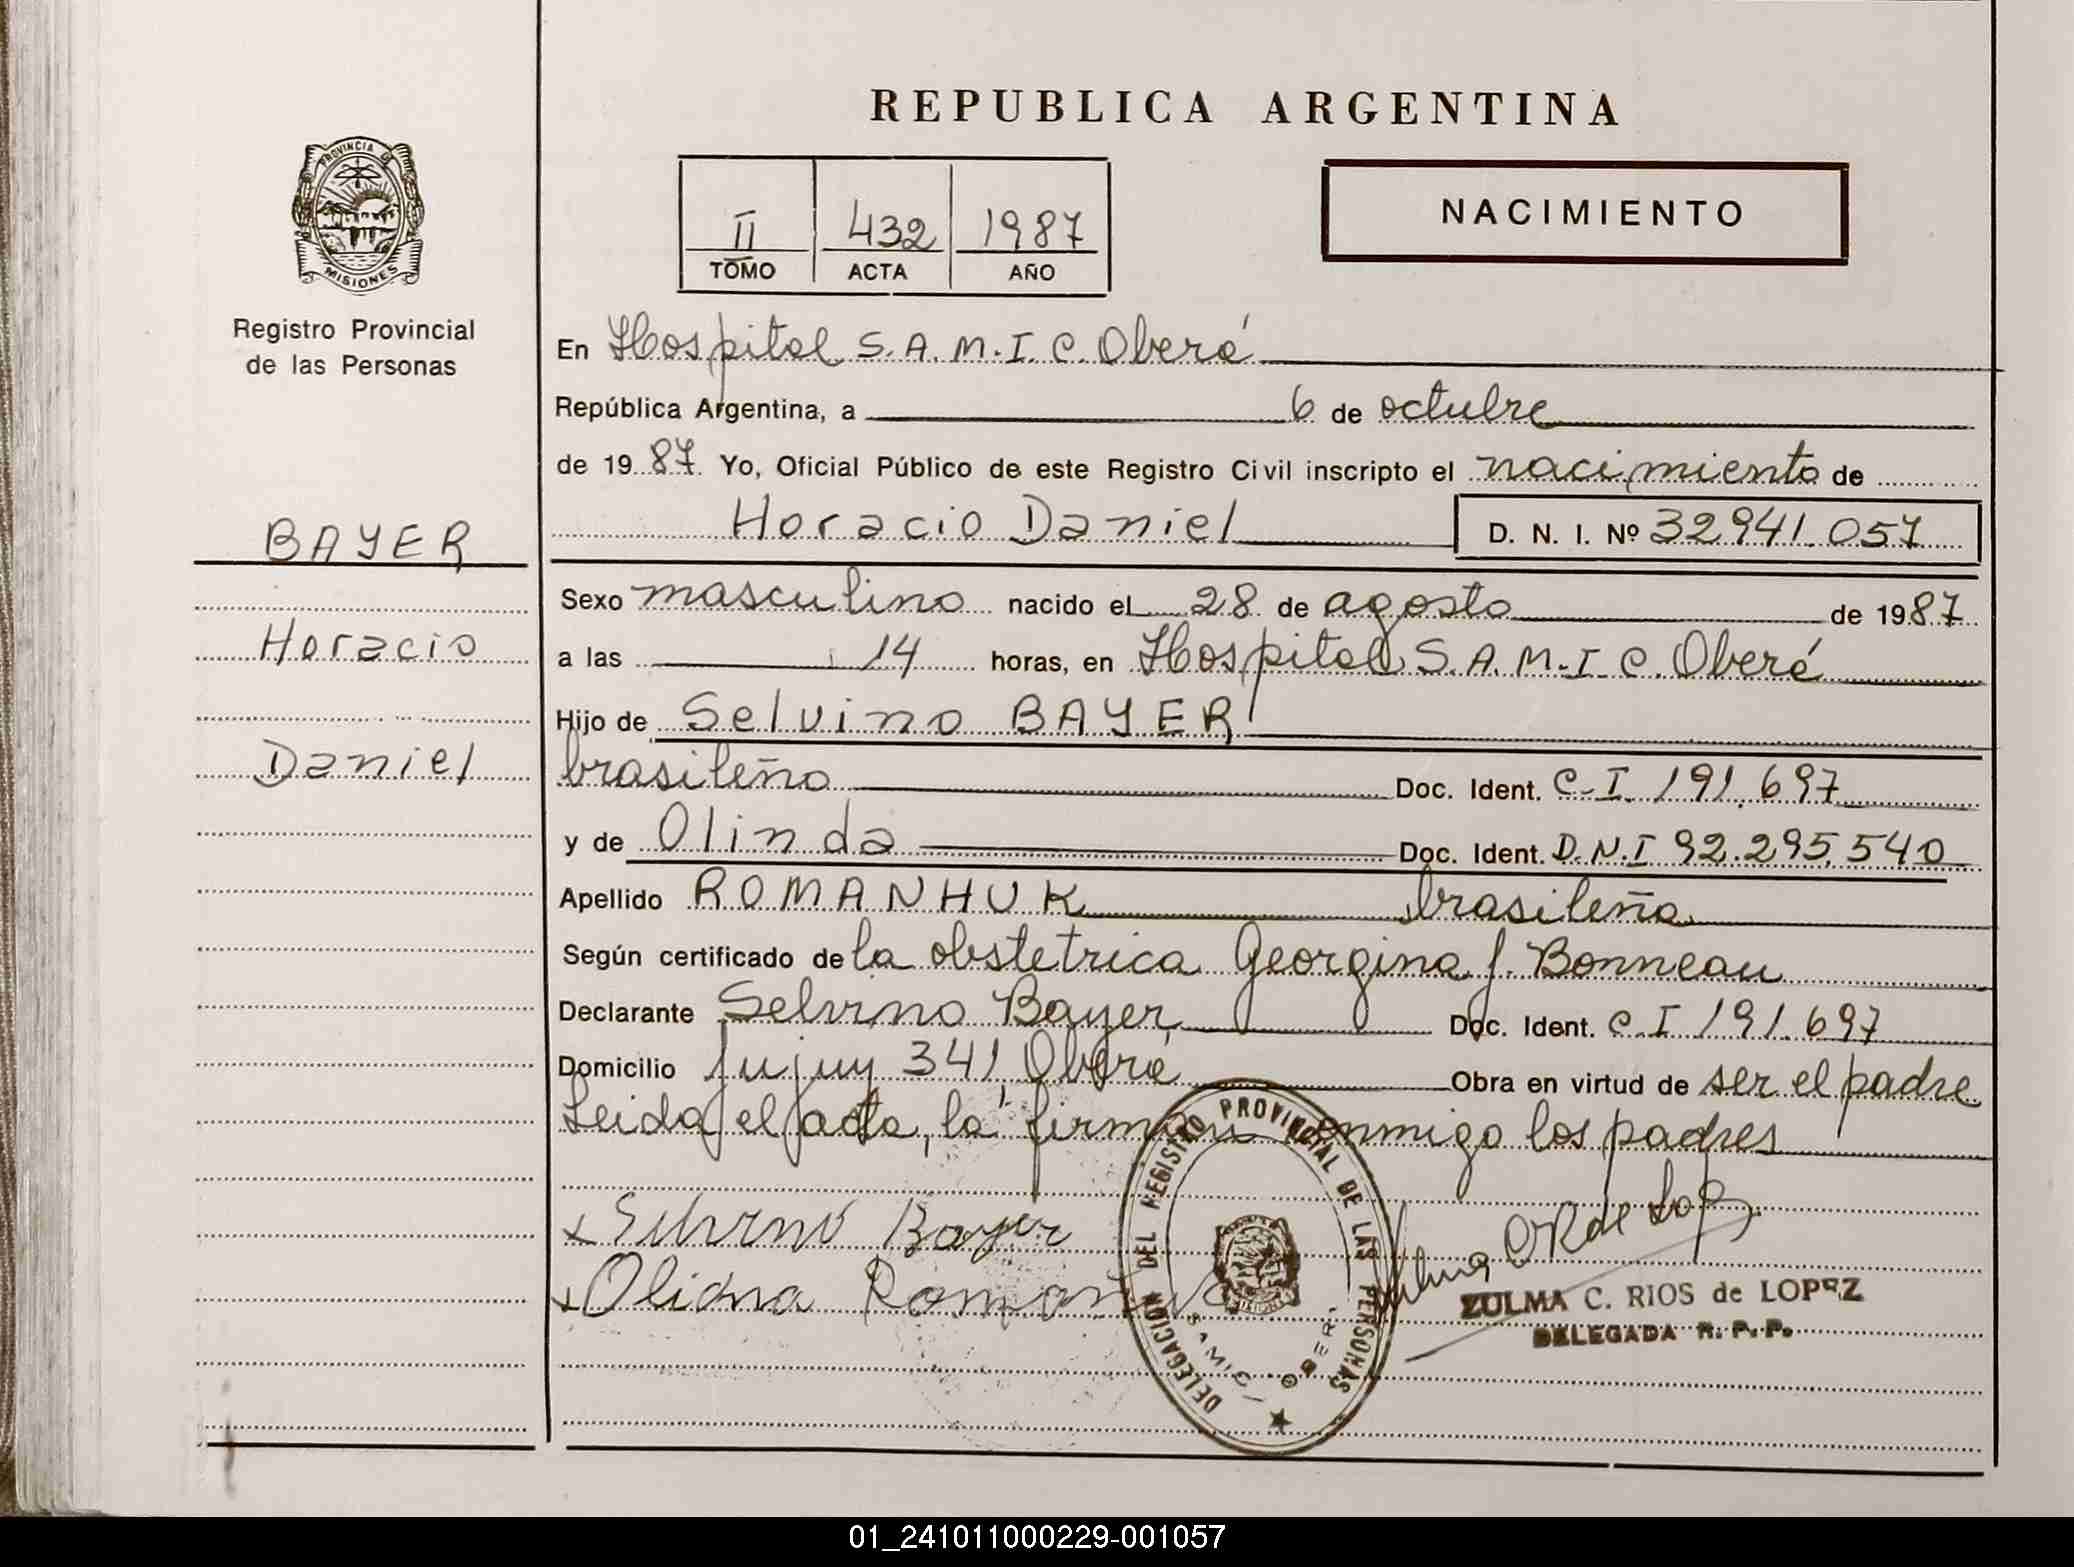 REPUBLICA ARGENTINA
PROVINCIA DE
MISIONES
Registro Provincial
de las Personas
II 432 1987
TOMO ACTA AÑO
NACIMIENTO
En Hospital S.A.M.I.C. Oberá
República Argentina, a 6 de octubre
de 1987 Yo, Oficial Público de este Registro Civil inscripto el nacimiento de
Horacio Daniel D. N. I. Nº 32941.057
BAYER
Horacio
Daniel
Sexo masculino nacido el 28 de agosto de 1987
a las 14 horas, en Hospital S.A.M.I.C. Oberá
Hijo de Selvino BAYER
brasileño Doc. Ident. C.I. 191.697
y de Olinda Doc. Ident. D.N.I 92.295.540
Apellido ROMANHUK brasileña
Según certificado de la obstetrica Georgina J. Bonneau
Declarante Selvino Bayer Doc. Ident. C.I 191.697
Domicilio Jujuy 341, Oberá Obra en virtud de ser el padre
Leida el acta, la firman conmigo los padres
x Selvino Bayer
x Olidna
DELEGACION DEL REGISTRO PROVINCIAL DE LAS PERSONAS
Zulma C R de Lopez
ZULMA C. RIOS de LOPEZ
DELEGADA R. P. P.
01_241011000229-001057